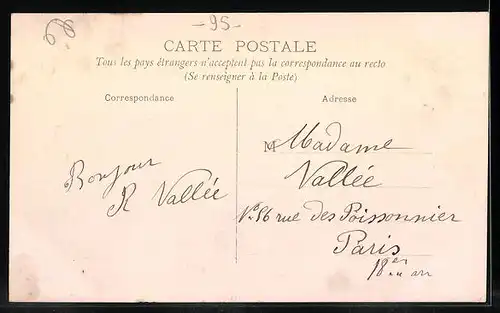 -95-
CARTE POSTALE
Tous les pays étrangers n'acceptent pas la correspondance au recto
(Se renseigner à la Poste)
Correspondance
Adresse
Bonjour
R Vallée
M Madame
Vallée
No 56 rue des Poissonnier
Paris
18